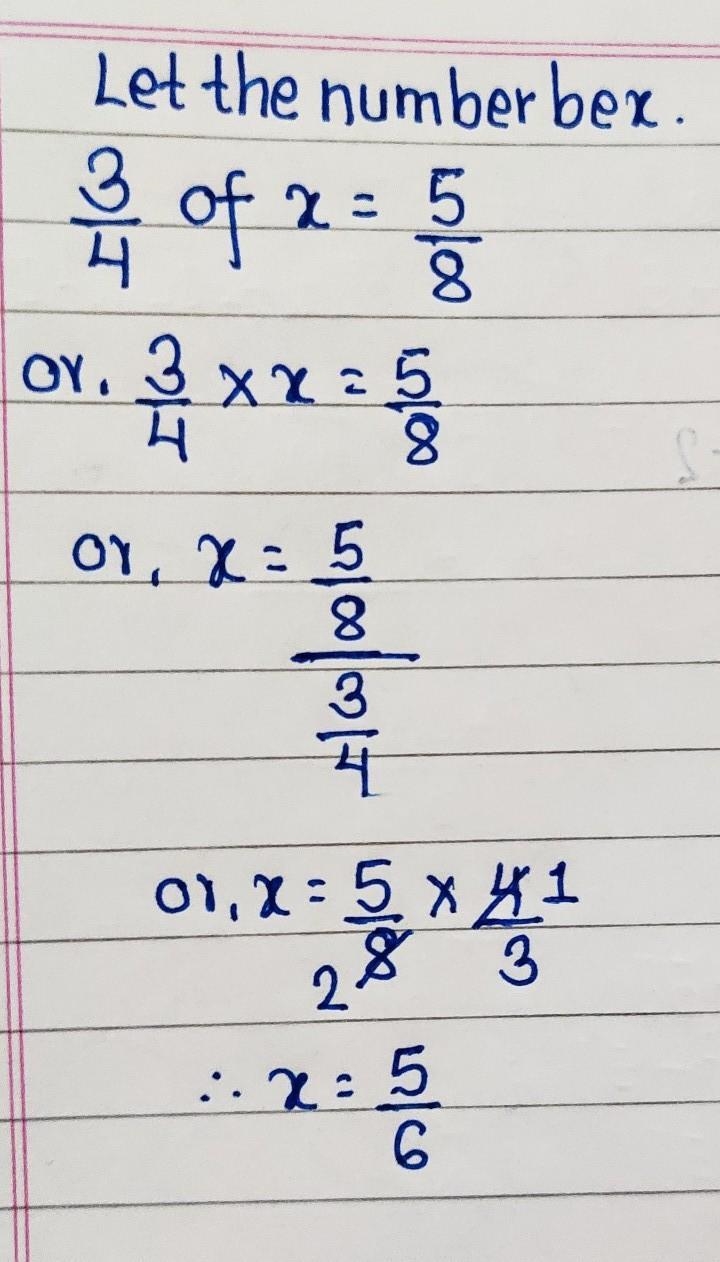 Let the number be x.
3/4 of x = 5/8
or, 3/4 × x = 5/8
or, x = 5/8 / 3/4
or, x = 5/8 2 × 4/3 1
∴ x = 5/6